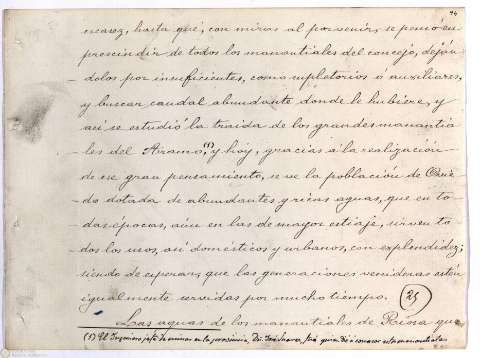 24
escasez, hasta que, con miras al porvenir, se pensó en
prescindir de todos los manantiales del concejo, deján
dolos por insuficientes, como supletorios ó auxiliares,
y buscar caudal abundante donde le hubiere, y
así se estudió la traida de los grandes manantia
les del Aramo,(1) y hoy, gracias á la realización
de ese gran pensamiento, se ve la población de Ovie
do dotada de abundantes y ricas aguas, que en to
das épocas, aún en las de mayor estiaje, sirven to
dos los usos, así domésticos y urbanos, con explendidez;
siendo de esperar, que las generaciones venideras estén
igualmente servidas por mucho tiempo. (25)
Las aguas de los manantiales de Boina que
(1) El Ingeniero jefe de minas en la provincia, Dn. José Suarez, fué quien dió a conocer estos manantiales